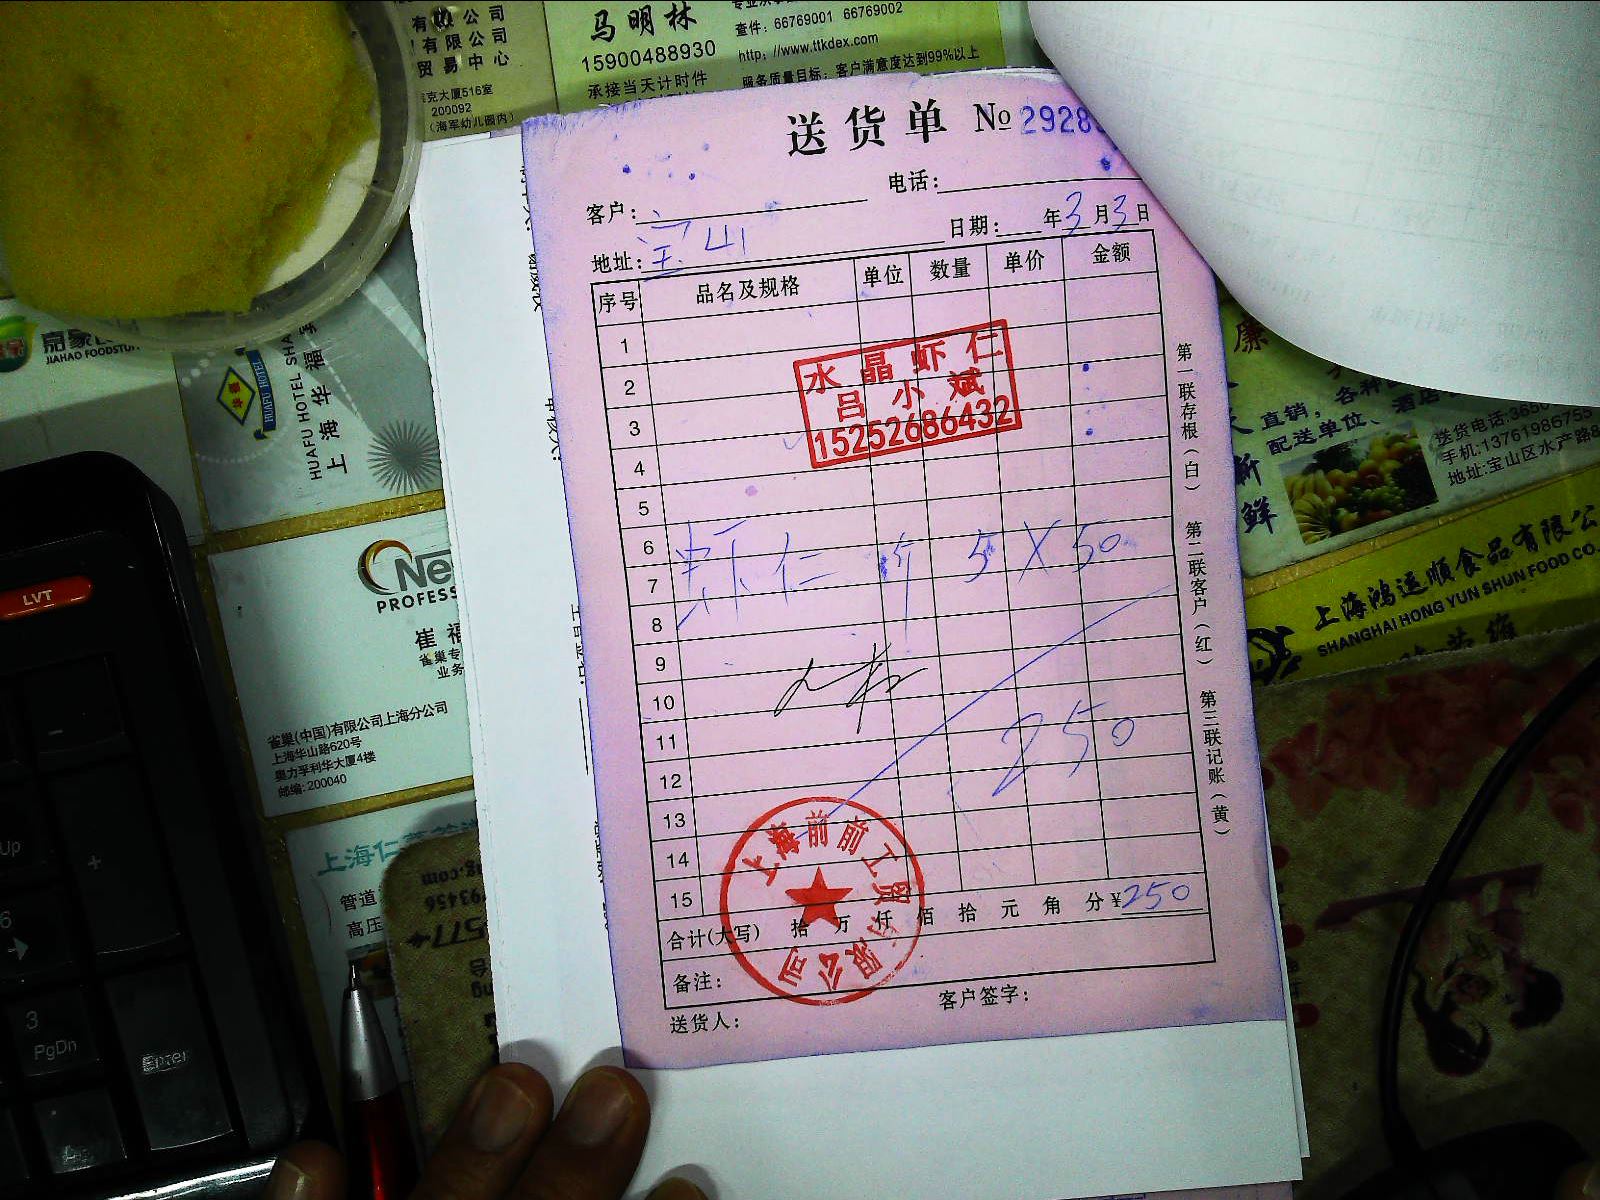 有限公司
有限公司
贸易中心
克大厦516室
200092
(海军幼儿园内)
马明林
15900488930
承接当天计时件
查件: 66769001 66769002
http://www.ttkdex.com
服务质量目标: 客户满意度达到99%以上
送货单 №2928
电话:
客户:
宝山
日期: 年3月3日
地址:
序号 品名及规格 单位 数量 单价 金额
1
2
3
4
5
6
7
8
9
10
11
12
13
14
15
水晶虾仁
吕小斌
15252686432
虾仁 斤 5 X 50
250
上海前前工贸有限公司
合计(大写) 拾 万 仟 佰 拾 元 角 分 ¥250
备注:
送货人:
客户签字:
第一联存根(白)
第二联客户(红)
第三联记账(黄)
JIAHAO FOODSTUFF
HUAFU HOTEL
HUAFU HOTEL SHA
上海华福
Ne
PROFESS
崔福
雀巢专
业务
雀巢(中国)有限公司上海分公司
上海华山路620号
奥力孚利华大厦4楼
邮编: 200040
上海仁
管道
高压
直销,各种
配送单位、酒店
新鲜
送货电话:3650
手机:13761986755
地址:宝山区水产路8
上海鸿运顺食品有限公
SHANGHAI HONG YUN SHUN FOOD CO.
LVT
3
PgDn
Enter
+
6